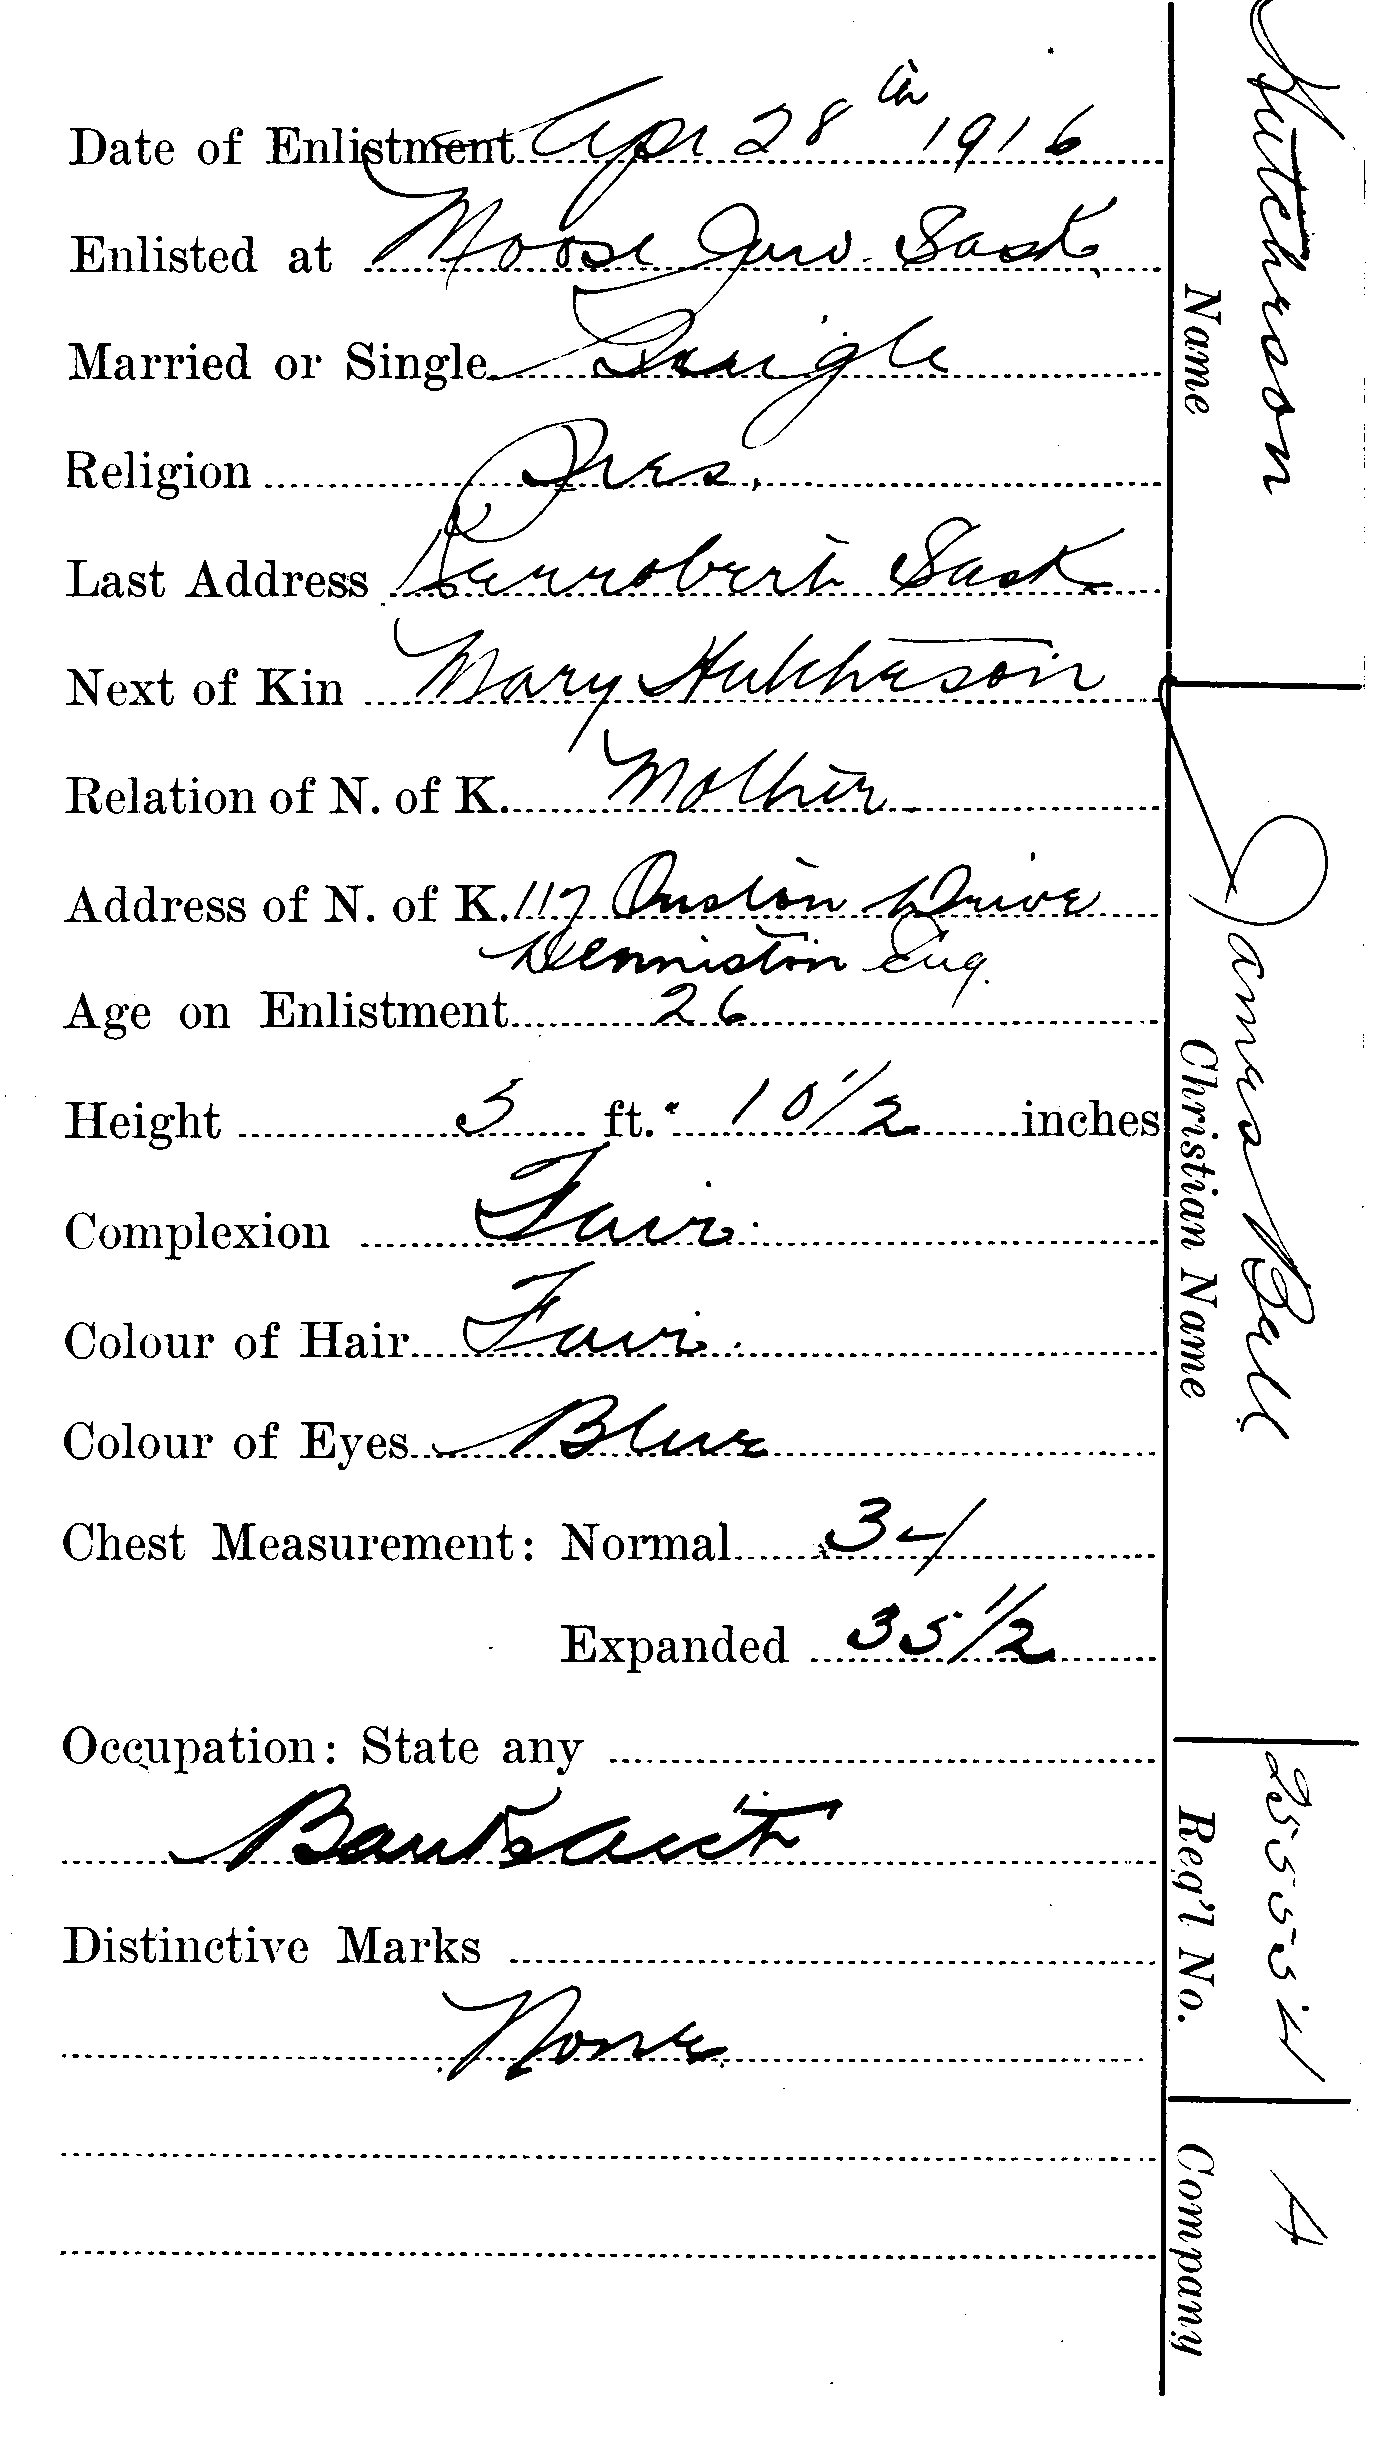 Date of Enlistment Apr 28th 1916
Enlisted at Moose Jaw Sask
Married or Single Single
Religion Pres.
Last Address Kerrobert Sask
Next of Kin Mary Hutcheson
Relation of N. of K. Mother
Address of N. of K. 117 Drive
Denniston Eng.
Age on Enlistment 26
Height 5 ft. 10 1/2 inches
Complexion Fair
Colour of Hair Fair
Colour of Eyes Blue
Chest Measurement: Normal 34
Expanded 35 1/2
Occupation: State any
Distinctive Marks
None
Hutcheson
Name
James Bell
Christian Name
Reg'l No.
A
Company